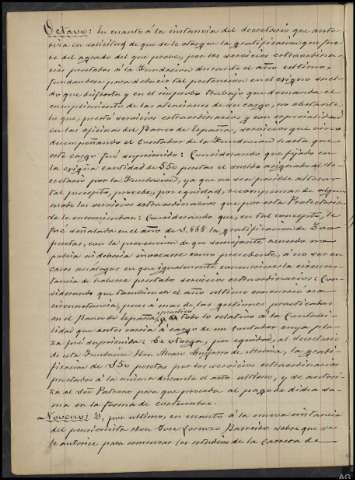 Octavo: En cuanto á la instancia del Secretario que ante-
en solicitud de que se le otorgue la gratificacion que fue-
re del agrado del que provee, por los servicios extraordina-
rios prestados á la Fundacion durante el año último,
fundandose para deducir tal pretension en el exiguo suel-
do que disfruta y en el trabajo que demanda el
cumplimiento de las atenciones de su cargo, no obstante
lo que, prestó servicios extraordinarios y con
en las oficinas del Banco de España, servicios que vino
desempeñando el Contador de la Fundacion hasta que
este cargo fué suprimido: Considerando que fijado en
la exigua cantidad de 550 pesetas el sueldo asignado al Se-
cretario por la Fundacion, ya que no sea posible alterar
tal precepto, procede, por equidad, recompensar de algun
modo los servicios extraordinarios que por este Protectorado
se le encomiendan: Considerando que, en tal concepto, le
fué señalada en el año de 1.888 la gratificacion de 500
pesetas, con la prevencion de que semejante acuerdo no
podria ni deberia invocarse como precedente, á no ser en
casos análogos en que igualmente concurriese la circuns-
tancia de haberse prestado servicios extraordinarios: Consi-
derando que tambien en el año último concurrió dicha
circunstancia, pues á mas de las gestiones practicadas
en el Banco de España, practicó todo lo relativo á la Contabi-
lidad que antes corria á cargo de un Contador cuya pla-
za fué suprimida: Se otorga, por equidad, al Secretario
de esta Fundacion Don Alvaro de Molina, la grati-
ficacion de 250 pesetas por los servicios extraordinarios
prestados á la misma durante el año último, y se autori-
za al Sr. Patrono para que proceda al pago de dicha su-
ma en la forma de costumbre.
Noveno: Y, por último, en cuanto á la nueva instancia
del pensionista Don José Lorenzo Barreiro sobre que se
le autorice para comenzar los estudios de la carrera de
AG